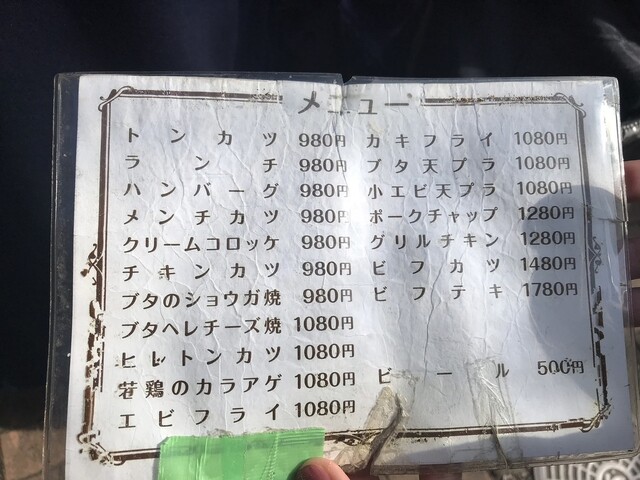 メニュー
トンカツ 980円
ランチ 980円
ハンバーグ 980円
メンチカツ 980円
クリームコロッケ 980円
チキンカツ 980円
ブタのショウガ焼 980円
ブタヘレチーズ焼 1080円
ヒレトンカツ 1080円
若鶏のカラアゲ 1080円
エビフライ 1080円
カキフライ 1080円
ブタ天プラ 1080円
小エビ天プラ 1080円
ポークチャップ 1280円
グリルチキン 1280円
ビフカツ 1480円
ビフテキ 1780円
ビール 500円